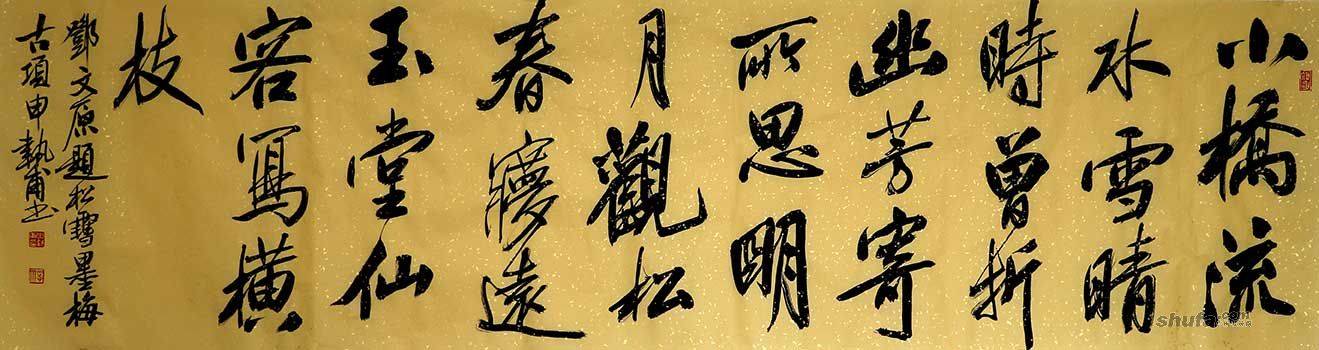 小橋流
水雪晴
時曾折
幽芳寄
所思明
月觀松
春夢遠
玉堂仙
客寫橫
枝
鄧文原題松雪墨梅
古項申執甫书
shufa